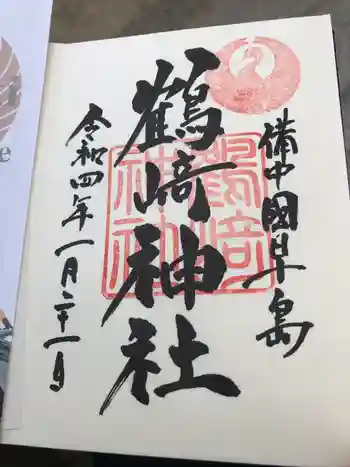 備中國早島
鶴﨑神社
鶴﨑神社
令和四年一月二十一日
e